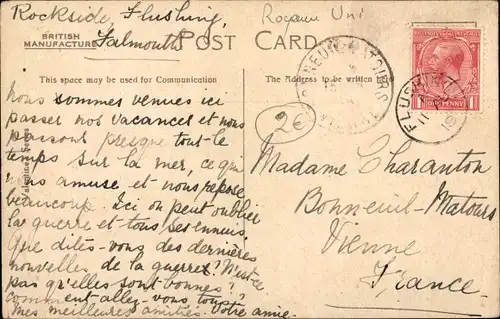 Rockside, Flushing,
Falmouth
Royaume Uni
BRITISH
MANUFACTURE
POST CARD
This space may be used for Communication
The Address to be written here
Nous sommes venues ici
passer nos vacances et nous
passons presque tout le
temps sur la mer, ce qui
nous amuse et nous repose
beaucoup. Ici on peut oublier
la guerre et tous ses ennuis.
Que dites-vous des dernières
nouvelles de la guerre? N'est-ce
pas qu'elles sont bonnes?
Comment allez-vous tous?
Mes meilleures amitiés. Votre amie.
2€
BONNEUIL-MATOURS
VIENNE
FLUSHING
ONE PENNY
Madame Charanton
Bonneuil-Matours
Vienne
France.